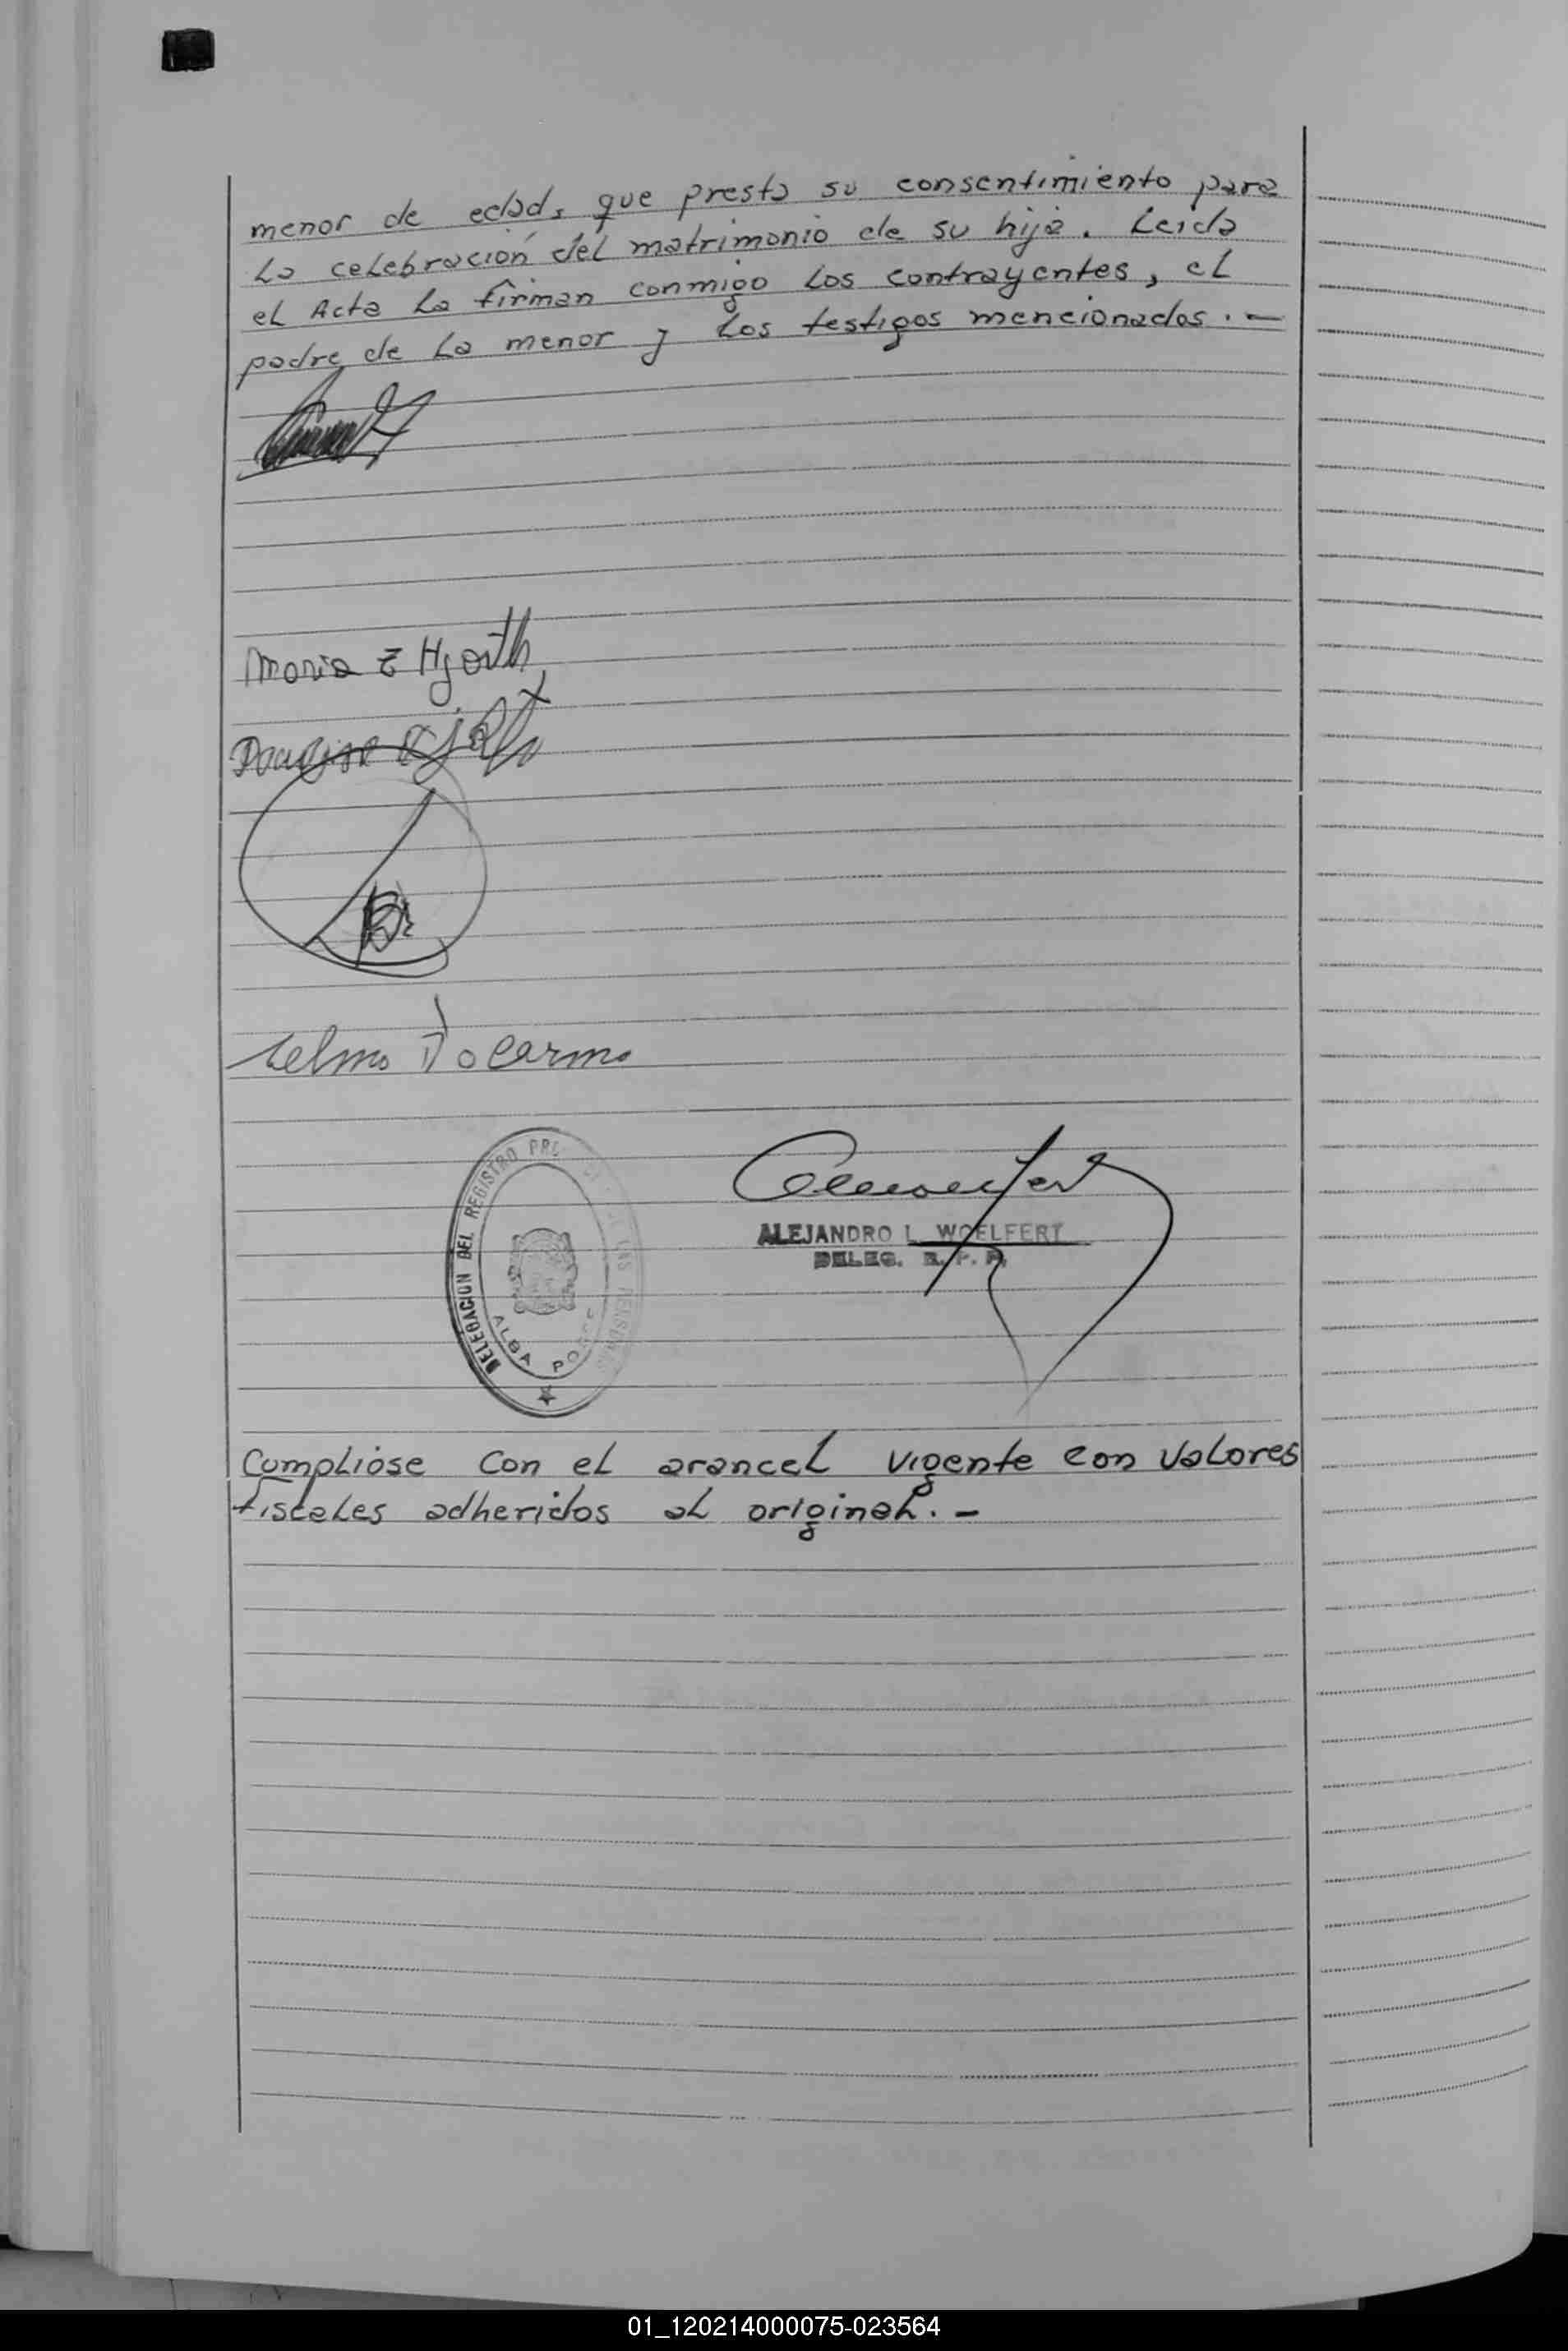 menor de edad, que presta su consentimiento para
la celebración del matrimonio de su hija. Leida
el Acta la firman conmigo los contrayentes, el
padre de la menor y los testigos mencionados. -
Maria E Hjorth
Telmo Do Carmo
DELEGACION DEL REGISTRO PR DE LAS PERSONAS
ALBA POSSE
ALEJANDRO L. WOELFERT
DELEG. R. P. P.
Cumpliose con el arancel vigente con valores
fiscales adheridos al original. -
01_120214000075-023564